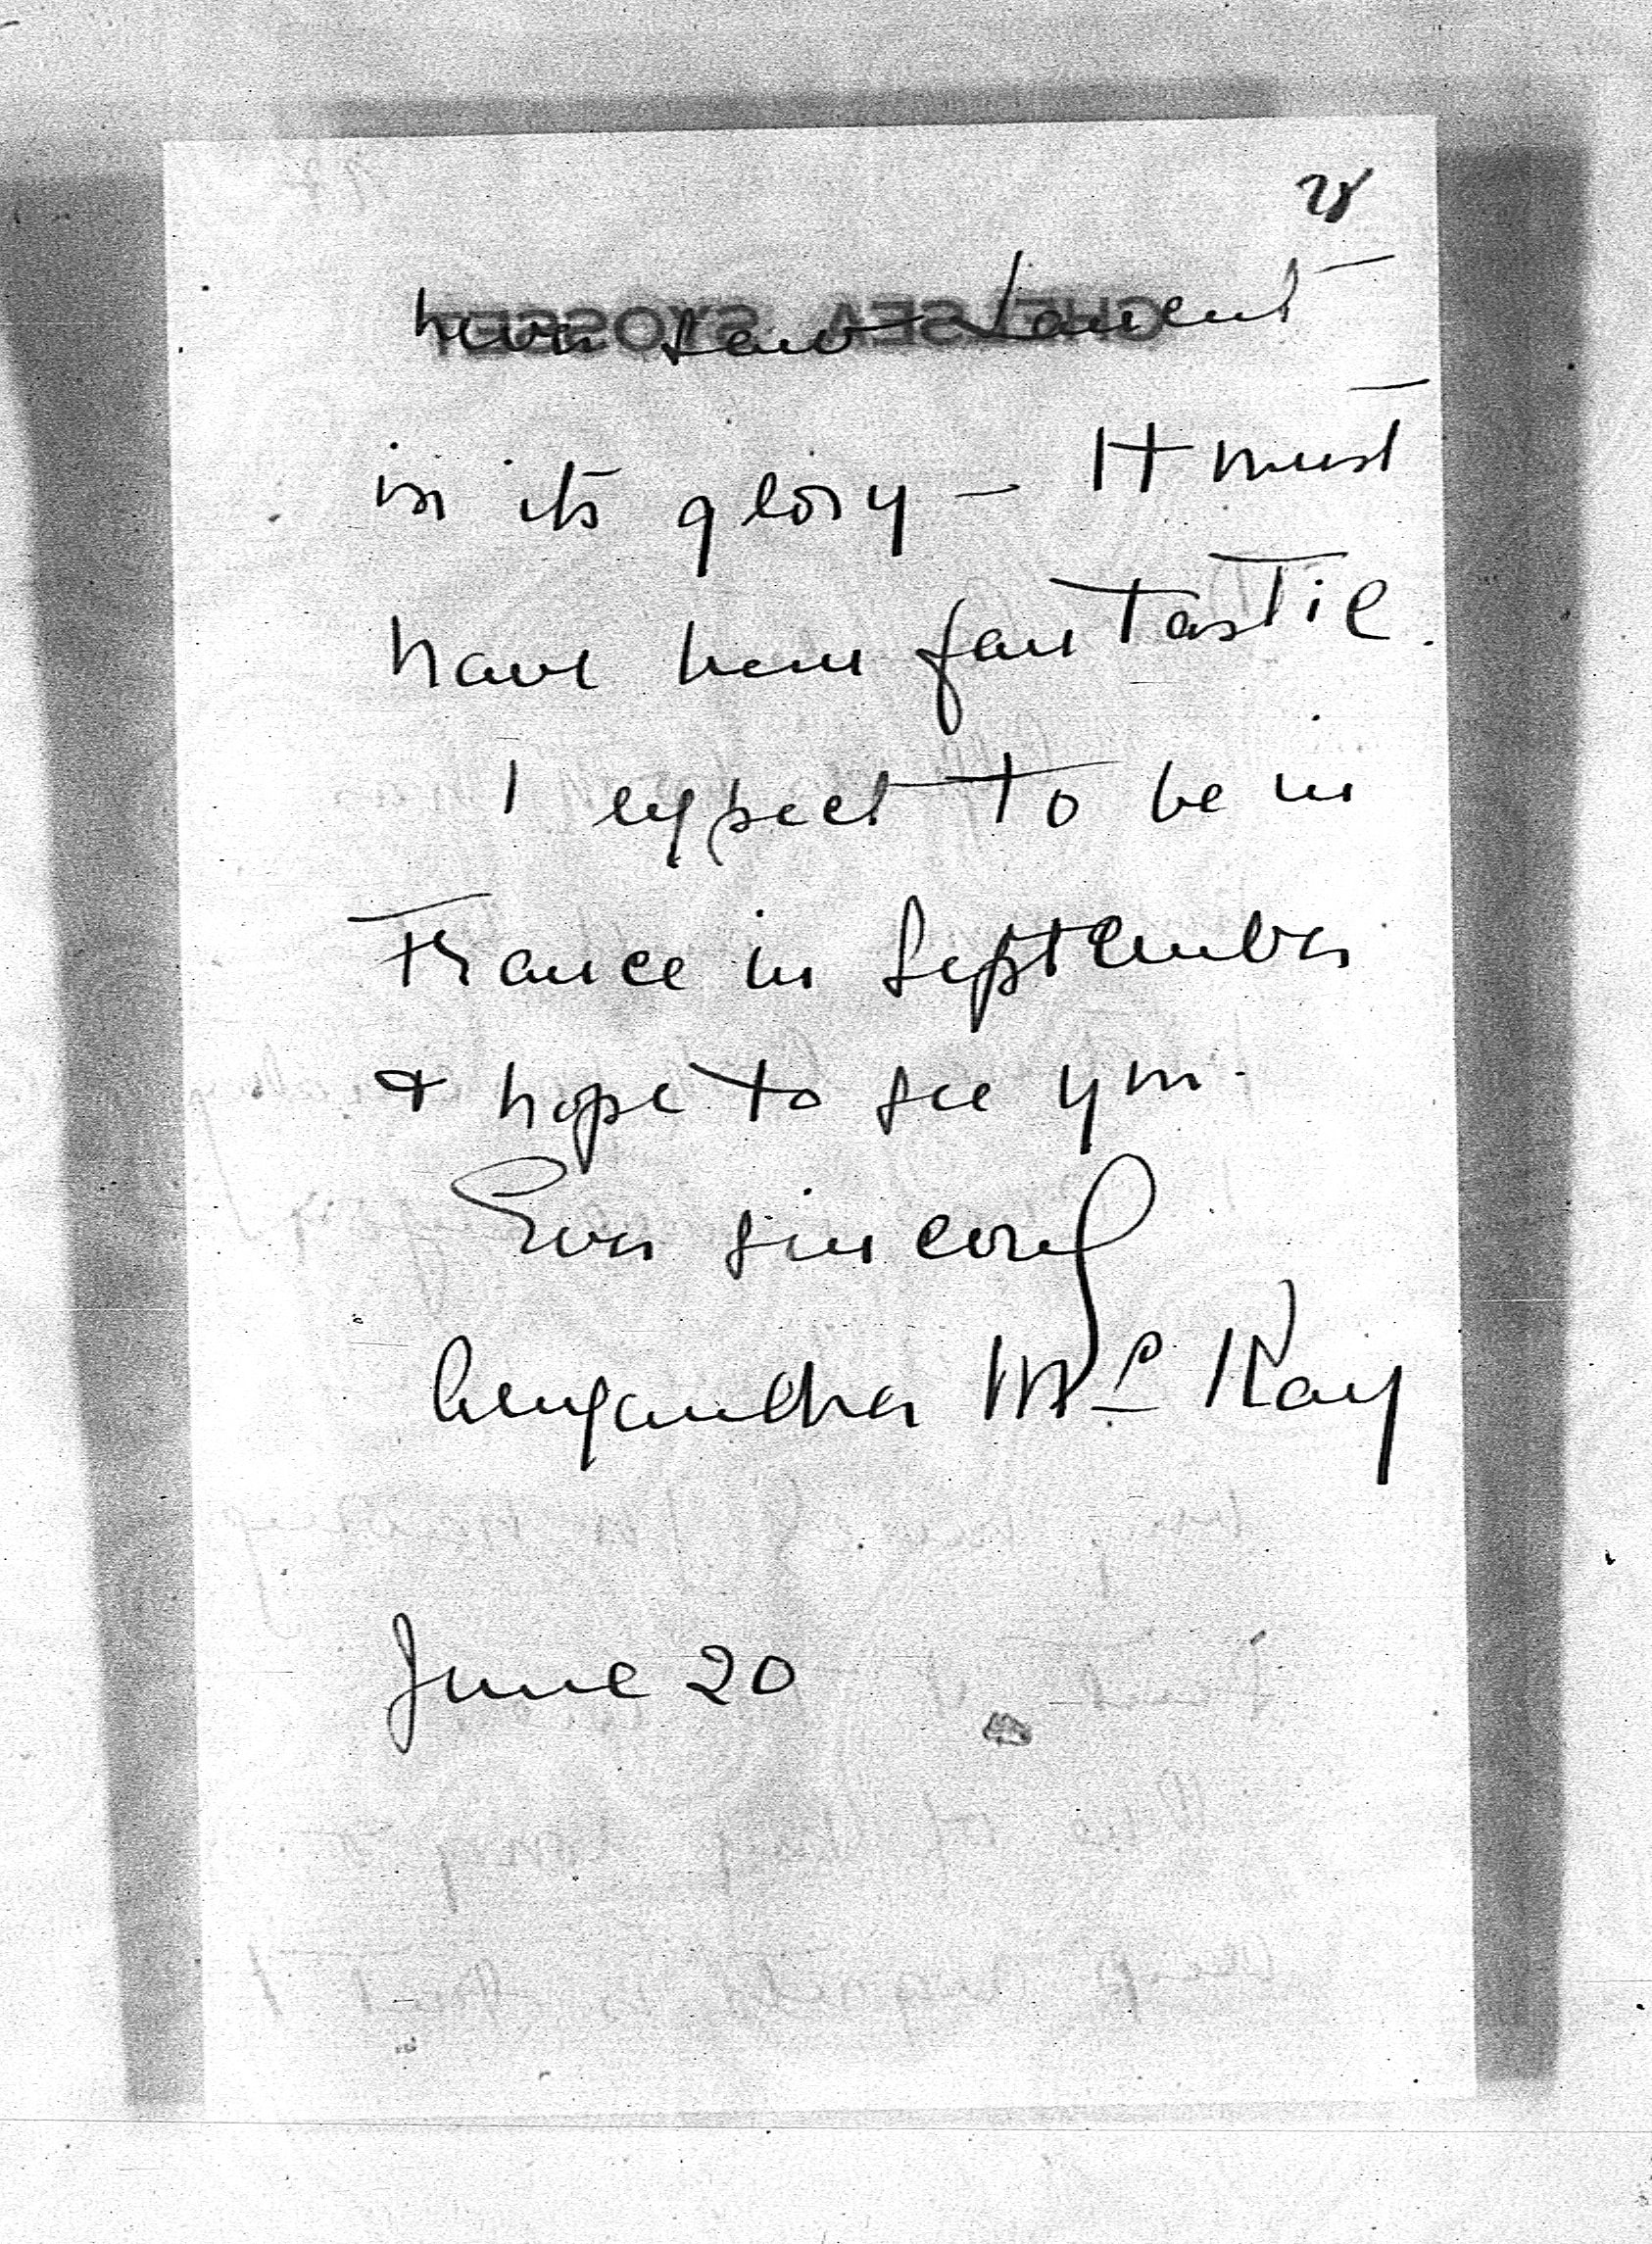 CHELSEA SYOSSET
never saw
in its glory — It must
have been fantastic.
I expect to be in
France in September
& hope to see you.
Ever sincerely
Alexandra Mc Kay
June 20